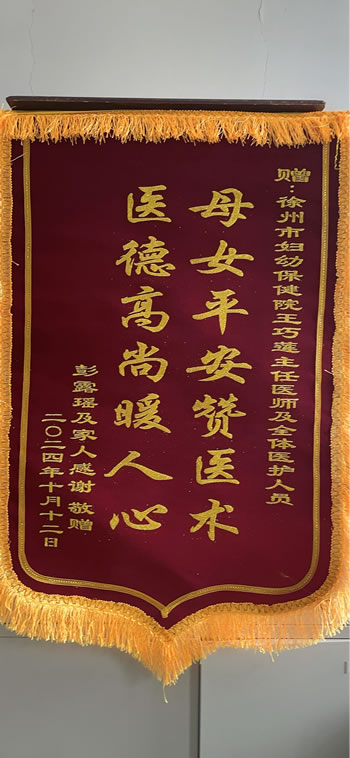 赠：徐州市妇幼保健院王巧莲主任医师及全体医护人员
母女平安赞医术
医德高尚暖人心
彭露瑶及家人感谢敬赠
二〇二四年十月十二日